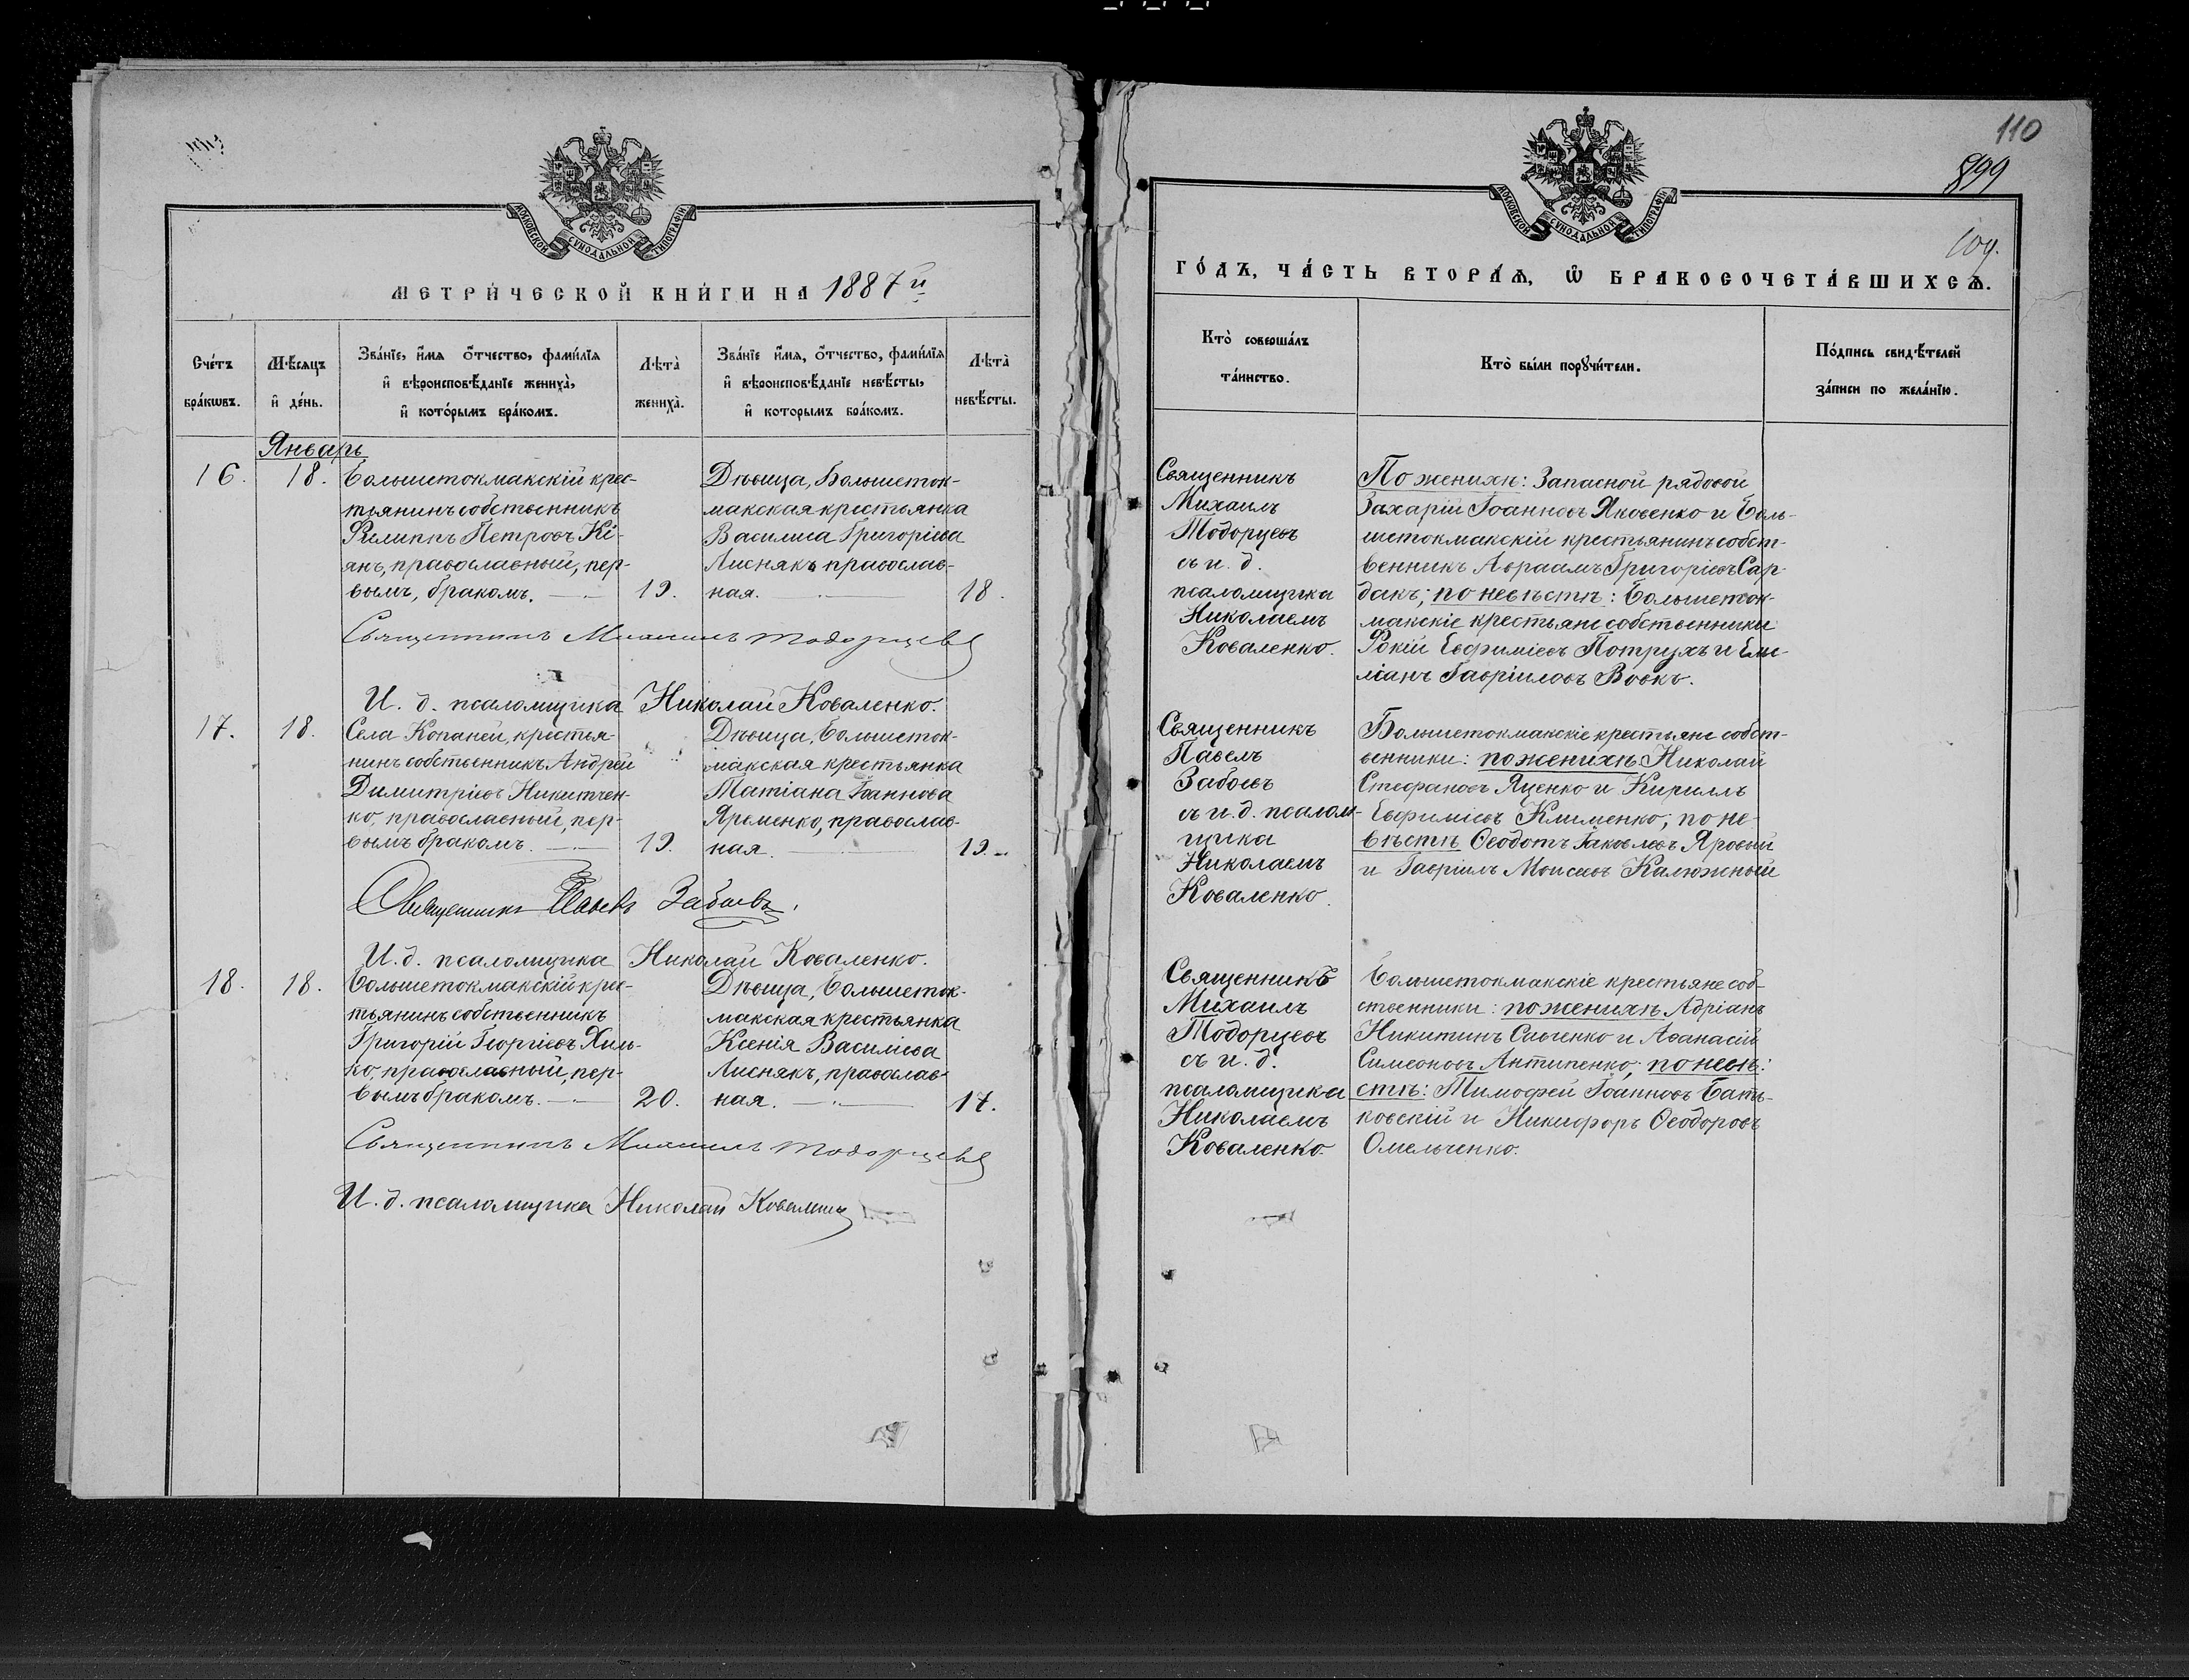 МОСКОВСКОЙ СѴНОДАЛЬНОЙ ТИПОГРАФІИ
МЕТРИ́ЧЕСКОЙ КНИ́ГИ НА 1887й
Сче́тъ бра́кѡвъ.
Мѣ́сяцъ и҆ де́нь.
Зва́нїе, и҆́мя ѻ҆́тчество, фами́лїя
и҆ вѣроисповѣ́данїе жениха̀,
и҆ кото́рымъ бра́комъ.
Лѣта̀ жениха̀.
Зва́нїе и҆́мя, ѻ҆́тчество, фами́лїя
и҆ вѣроисповѣ́данїе невѣ́сты,
и҆ которымъ бра́комъ.
Лѣта̀ невѣ́сты.
Январь
16. 18.
Большетокмакскій крес-
тьянинъ собственникъ
Филиппъ Петровъ Кі-
янъ, православный, пер-
вымъ, бракомъ.
19.
Дѣвица, Большеток-
макская крестьянка
Василиса Григоріева
Лиснякъ православ-
ная.
18.
Священникъ Михаилъ Тодорцевъ
И. д. псаломщика Николай Коваленко.
17. 18.
Села Копаней, крестья-
нинъ собственникъ Андрей
Димитріевъ Никитчен-
ко, православный, пер-
вымъ бракомъ.
19.
Дѣвица, Большеток-
макская крестьянка
Татіана Іоаннова
Яременко, православ-
ная.
19.
Священникъ Павелъ Забаевъ.
И. д. псаломщика Николай Коваленко.
18. 18.
Большетокмакскій крес-
тьянинъ собственникъ
Григорій Георгіевъ Хиль-
ко, православный, пер-
вымъ бракомъ.
20.
Дѣвица, Большеток-
макская крестьянка
Ксенія Василіева
Лиснякъ, православ-
ная.
17.
Священникъ Михаилъ Тодорцевъ
И. д. псаломщика Николай Коваленко
110
899
109.
МОСКОВСКОЙ СѴНОДАЛЬНОЙ ТИПОГРАФІИ
ГО́ДЪ, ЧА́СТЬ ВТОРА́Я, Ѡ҆ БРАКОСОЧЕТА́ВШИХСЯ.
Кто̀ соверша́лъ
та́инство.
Кто̀ бы́ли порꙋчи́тели.
По́дпись свидѣ́телей
за́писи по жела́нїю.
Священникъ
Михаилъ
Тодорцевъ
съ и. д.
псаломщика
Николаемъ
Коваленко.
По женихѣ: Запасной рядовой
Захарій Іоанновъ Яковенко и Боль-
шетокмакскій крестьянинъ собст-
венникъ Авраамъ Григоріевъ Сар-
дакъ; по невѣстѣ: Большеток-
макскіе крестьяне собственники
Фокій Евфиміевъ Потрухъ и Еми-
ліанъ Гавріиловъ Вовкъ.
Священникъ
Павелъ
Забаевъ
съ и. д. псалом-
щика
Николаемъ
Коваленко.
Большетокмакскіе крестьяне собст-
венники: по женихѣ Николай
Стефановъ Яценко и Кириллъ
Евфиміевъ Клименко; по не-
вѣстѣ Ѳеодотъ Іаковлевъ Яровый
и Гавріилъ Моисеевъ Калюжный
Священникъ
Михаилъ
Тодорцевъ
съ и. д.
псаломщика
Николаемъ
Коваленко.
Большетокмакскіе крестьяне соб-
ственники: по женихѣ Адріанъ
Никитинъ Савченко и Аѳанасій
Симеоновъ Антипенко; по невѣ-
стѣ: Тимофей Іоанновъ Бать-
ковскій и Никифоръ Ѳеодоровъ
Омельченко.